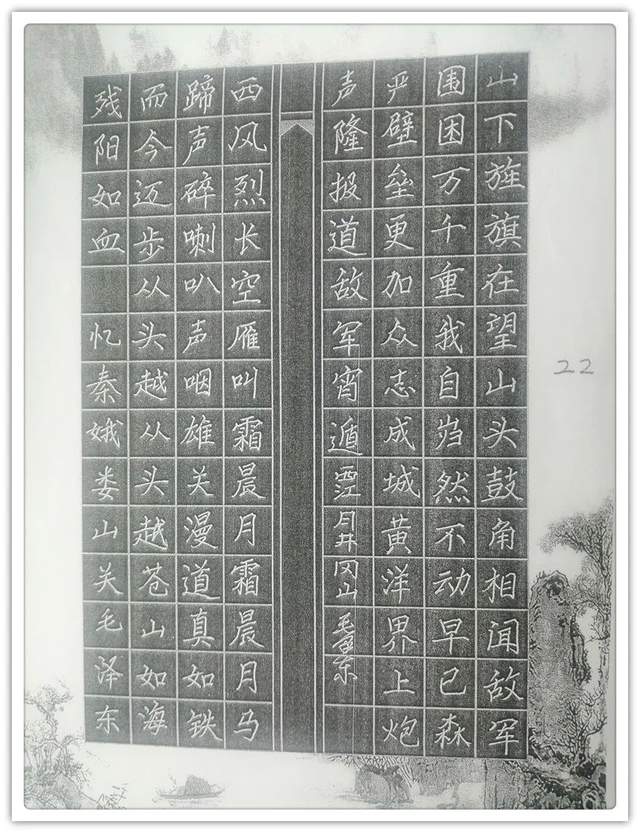 山下旌旗在望山头鼓角相闻敌军
围困万千重我自岿然不动早已森
严壁垒更加众志成城黄洋界上炮
声隆报道敌军宵遁西江月井冈山毛泽东
西风烈长空雁叫霜晨月霜晨月马
蹄声碎喇叭声咽雄关漫道真如铁
而今迈步从头越从头越苍山如海
残阳如血忆秦娥娄山关毛泽东
22